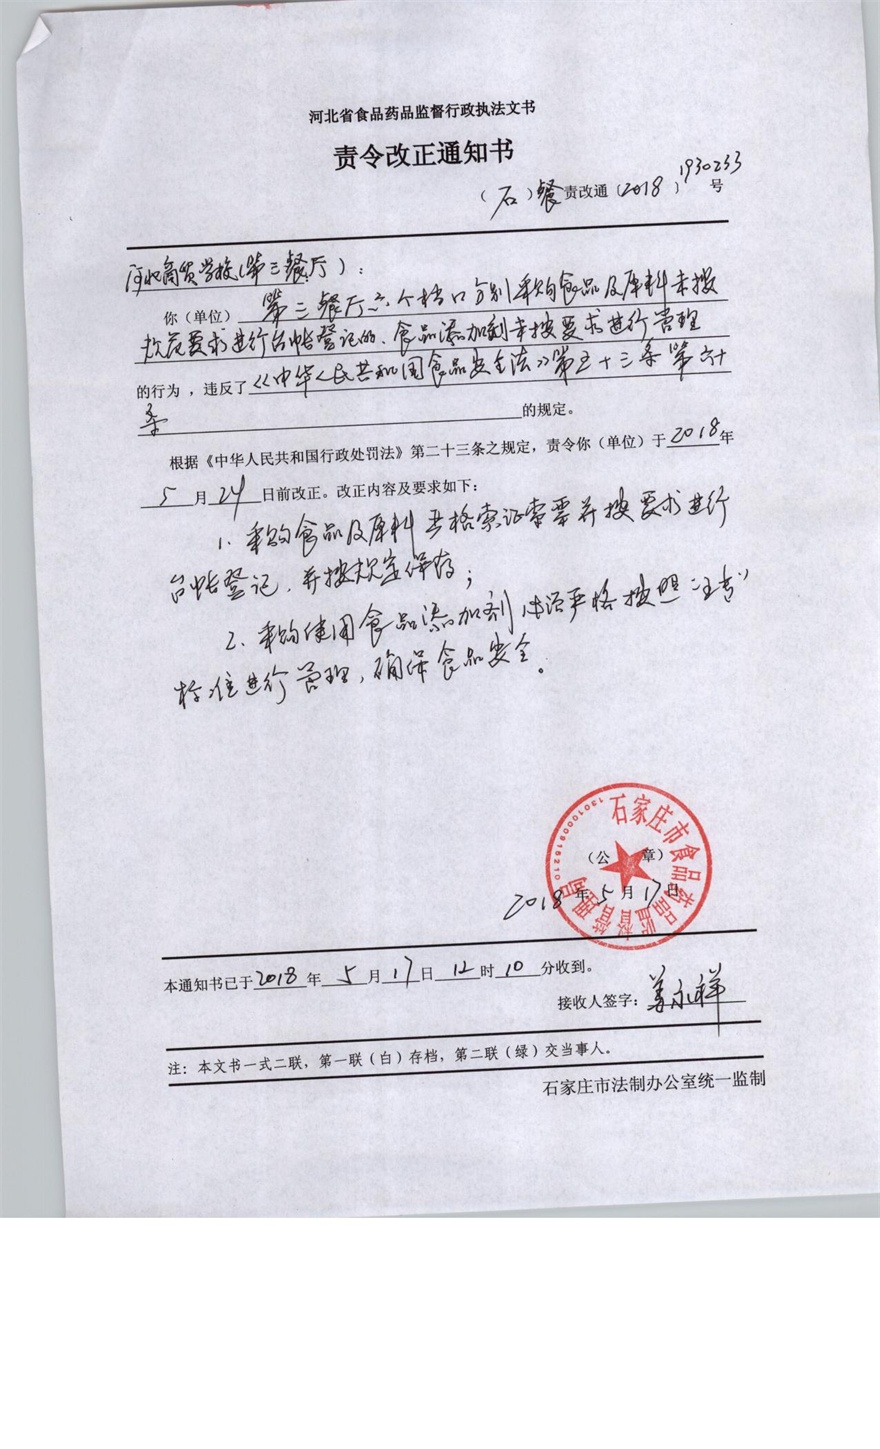 河北省食品药品监督行政执法文书
责令改正通知书
（石）餐责改通〔2018〕1930233号
河北商贸学校（第三餐厅）：
你（单位）第三餐厅六个档口分别采购食品及原料未按
规范要求进行台帐登记的、食品添加剂未按要求进行管理
的行为，违反了《中华人民共和国食品安全法》第五十三条第六十
条的规定。
根据《中华人民共和国行政处罚法》第二十三条之规定，责令你（单位）于2018年
5月24日前改正。改正内容及要求如下：
1、采购食品及原料严格索证索票并按要求进行
台帐登记，并按规定保存；
2、采购使用食品添加剂必须严格按照“五专”
标准进行管理，确保食品安全。
石家庄市食品药品监督管理局
1301000915210
（公章）
2018年5月17日
本通知书已于2018年5月17日12时10分收到。
接收人签字：姜永祥
注：本文书一式二联，第一联（白）存档，第二联（绿）交当事人。
石家庄市法制办公室统一监制